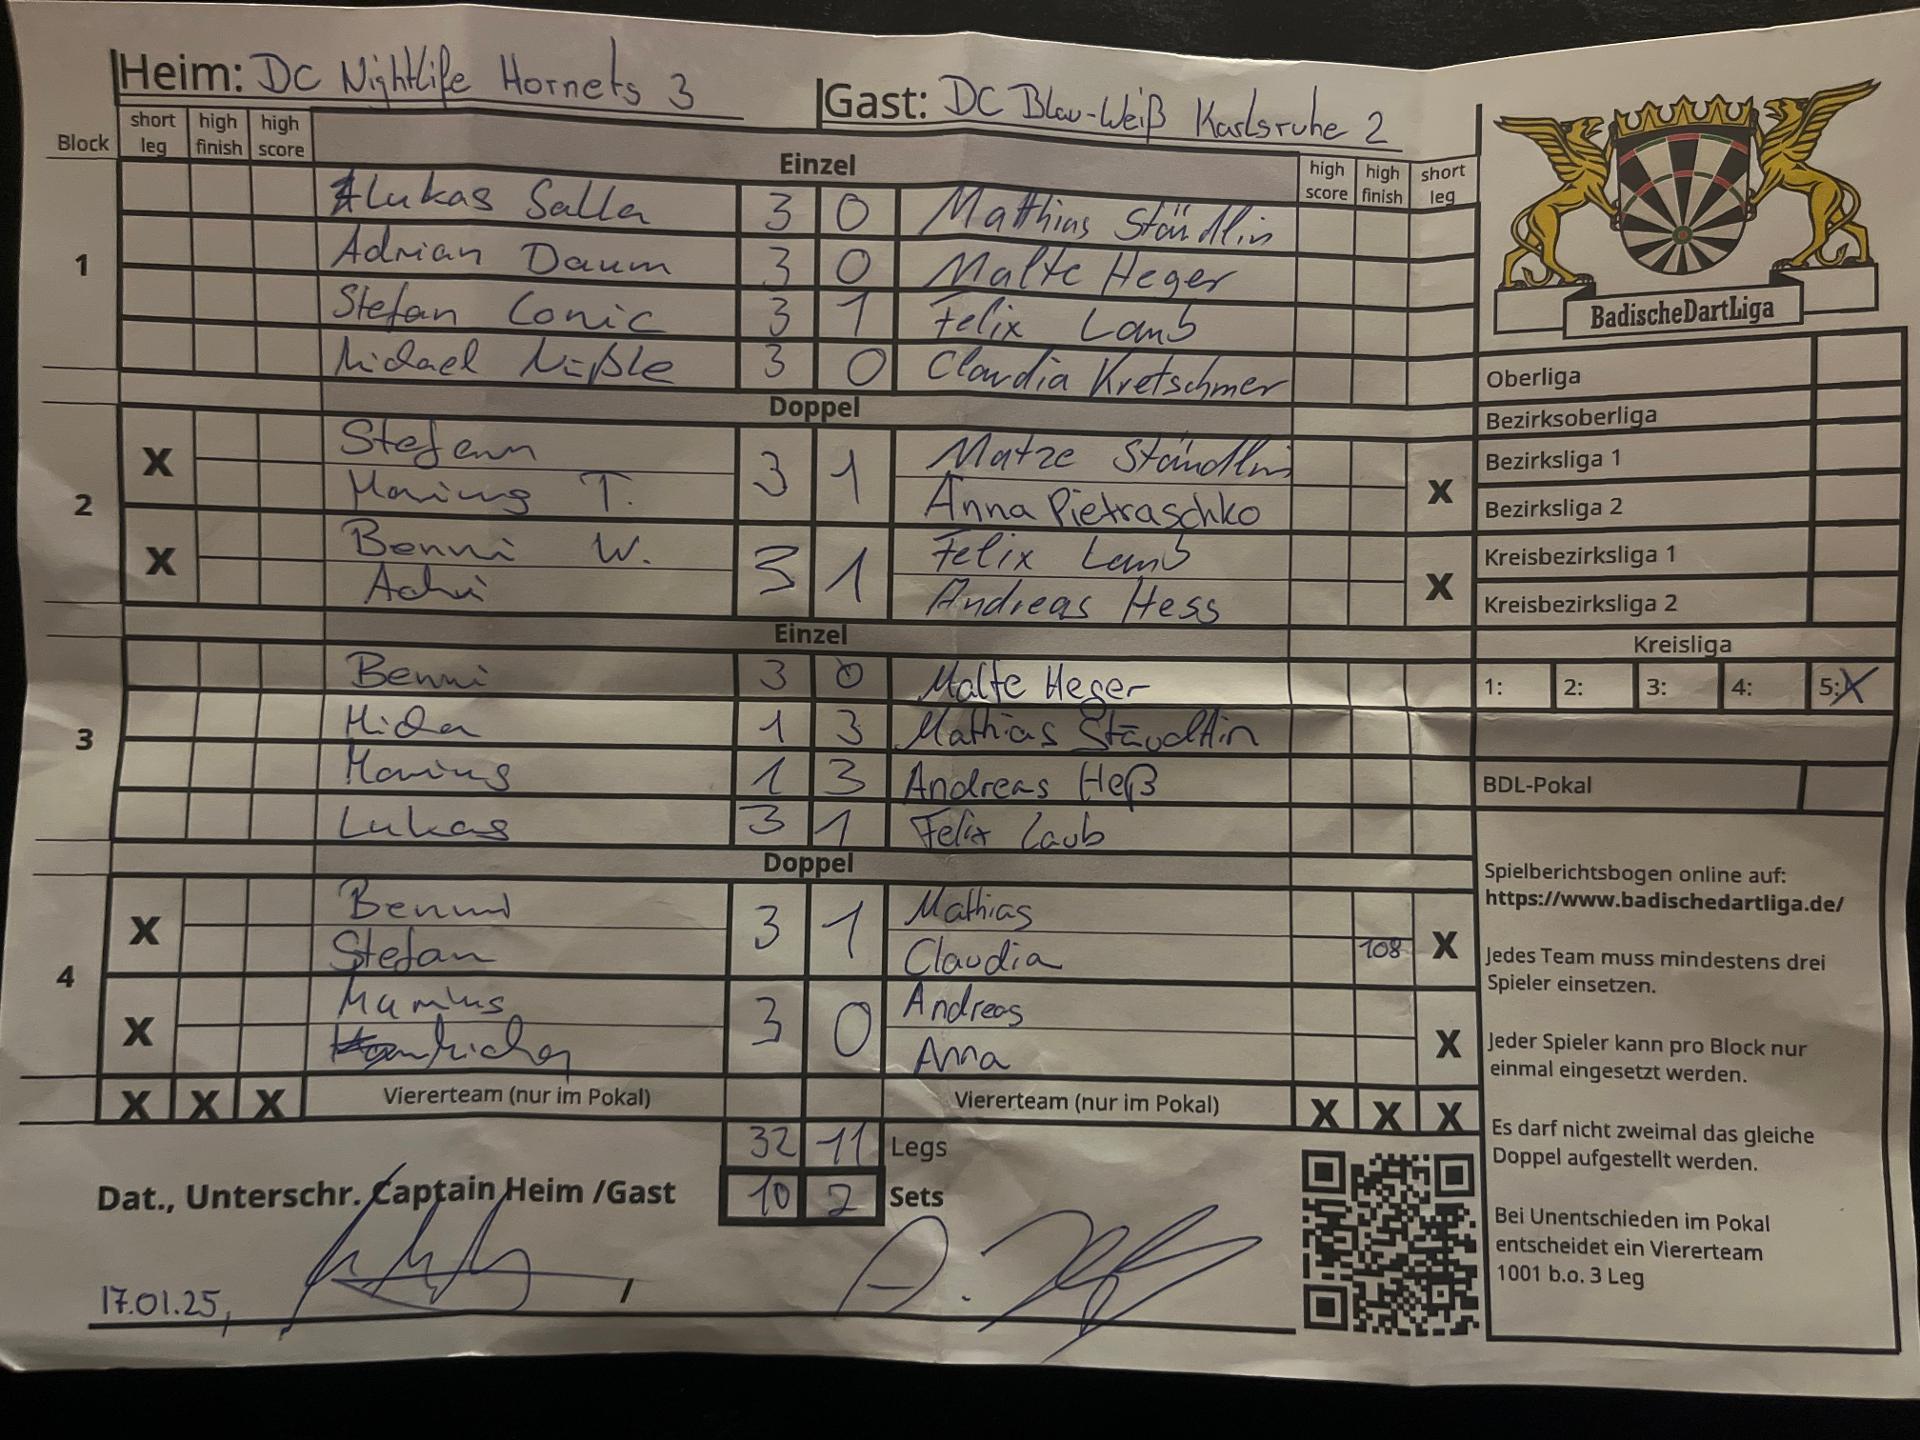 Heim: DC Nightlife Hornets 3 Gast: DC Blau-Weiß Karlsruhe 2
Block short leg high finish high score Einzel high score high finish short leg
1
Lukas Salla 3 0 Matthias Ständlin
Adrian Daum 3 0 Malte Heger
Stefan Conic 3 1 Felix Laub
Michael Nißle 3 0 Claudia Kretschmer
Doppel
2
X Stefann 3 1 Matze Ständlin X
Marius T. Anna Pietraschko
X Benni W. 3 1 Felix Laub X
Adri Andreas Hess
Einzel
3
Benni 3 0 Malte Heger
Micha 1 3 Mathias Stäudtlin
Marius 1 3 Andreas Heß
Lukas 3 1 Felix Laub
Doppel
4
X Benni 3 1 Mathias X
Stefan Claudia 108
X Marius 3 0 Andreas X
Micha Anna
X X X Viererteam (nur im Pokal) Viererteam (nur im Pokal) X X X
32 11 Legs
Dat., Unterschr. Captain Heim /Gast 10 2 Sets
17.01.25,
BadischeDartLiga
Oberliga
Bezirksoberliga
Bezirksliga 1
Bezirksliga 2
Kreisbezirksliga 1
Kreisbezirksliga 2
Kreisliga
1: 2: 3: 4: 5: X
BDL-Pokal
Spielberichtsbogen online auf:
https://www.badischedartliga.de/
Jedes Team muss mindestens drei
Spieler einsetzen.
Jeder Spieler kann pro Block nur
einmal eingesetzt werden.
Es darf nicht zweimal das gleiche
Doppel aufgestellt werden.
Bei Unentschieden im Pokal
entscheidet ein Viererteam
1001 b.o. 3 Leg